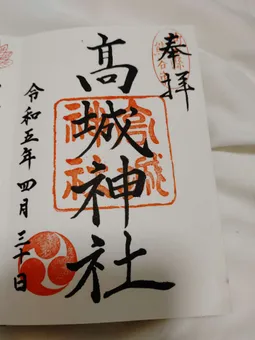 奉拝
髙城神社
令和五年 四月 三十日